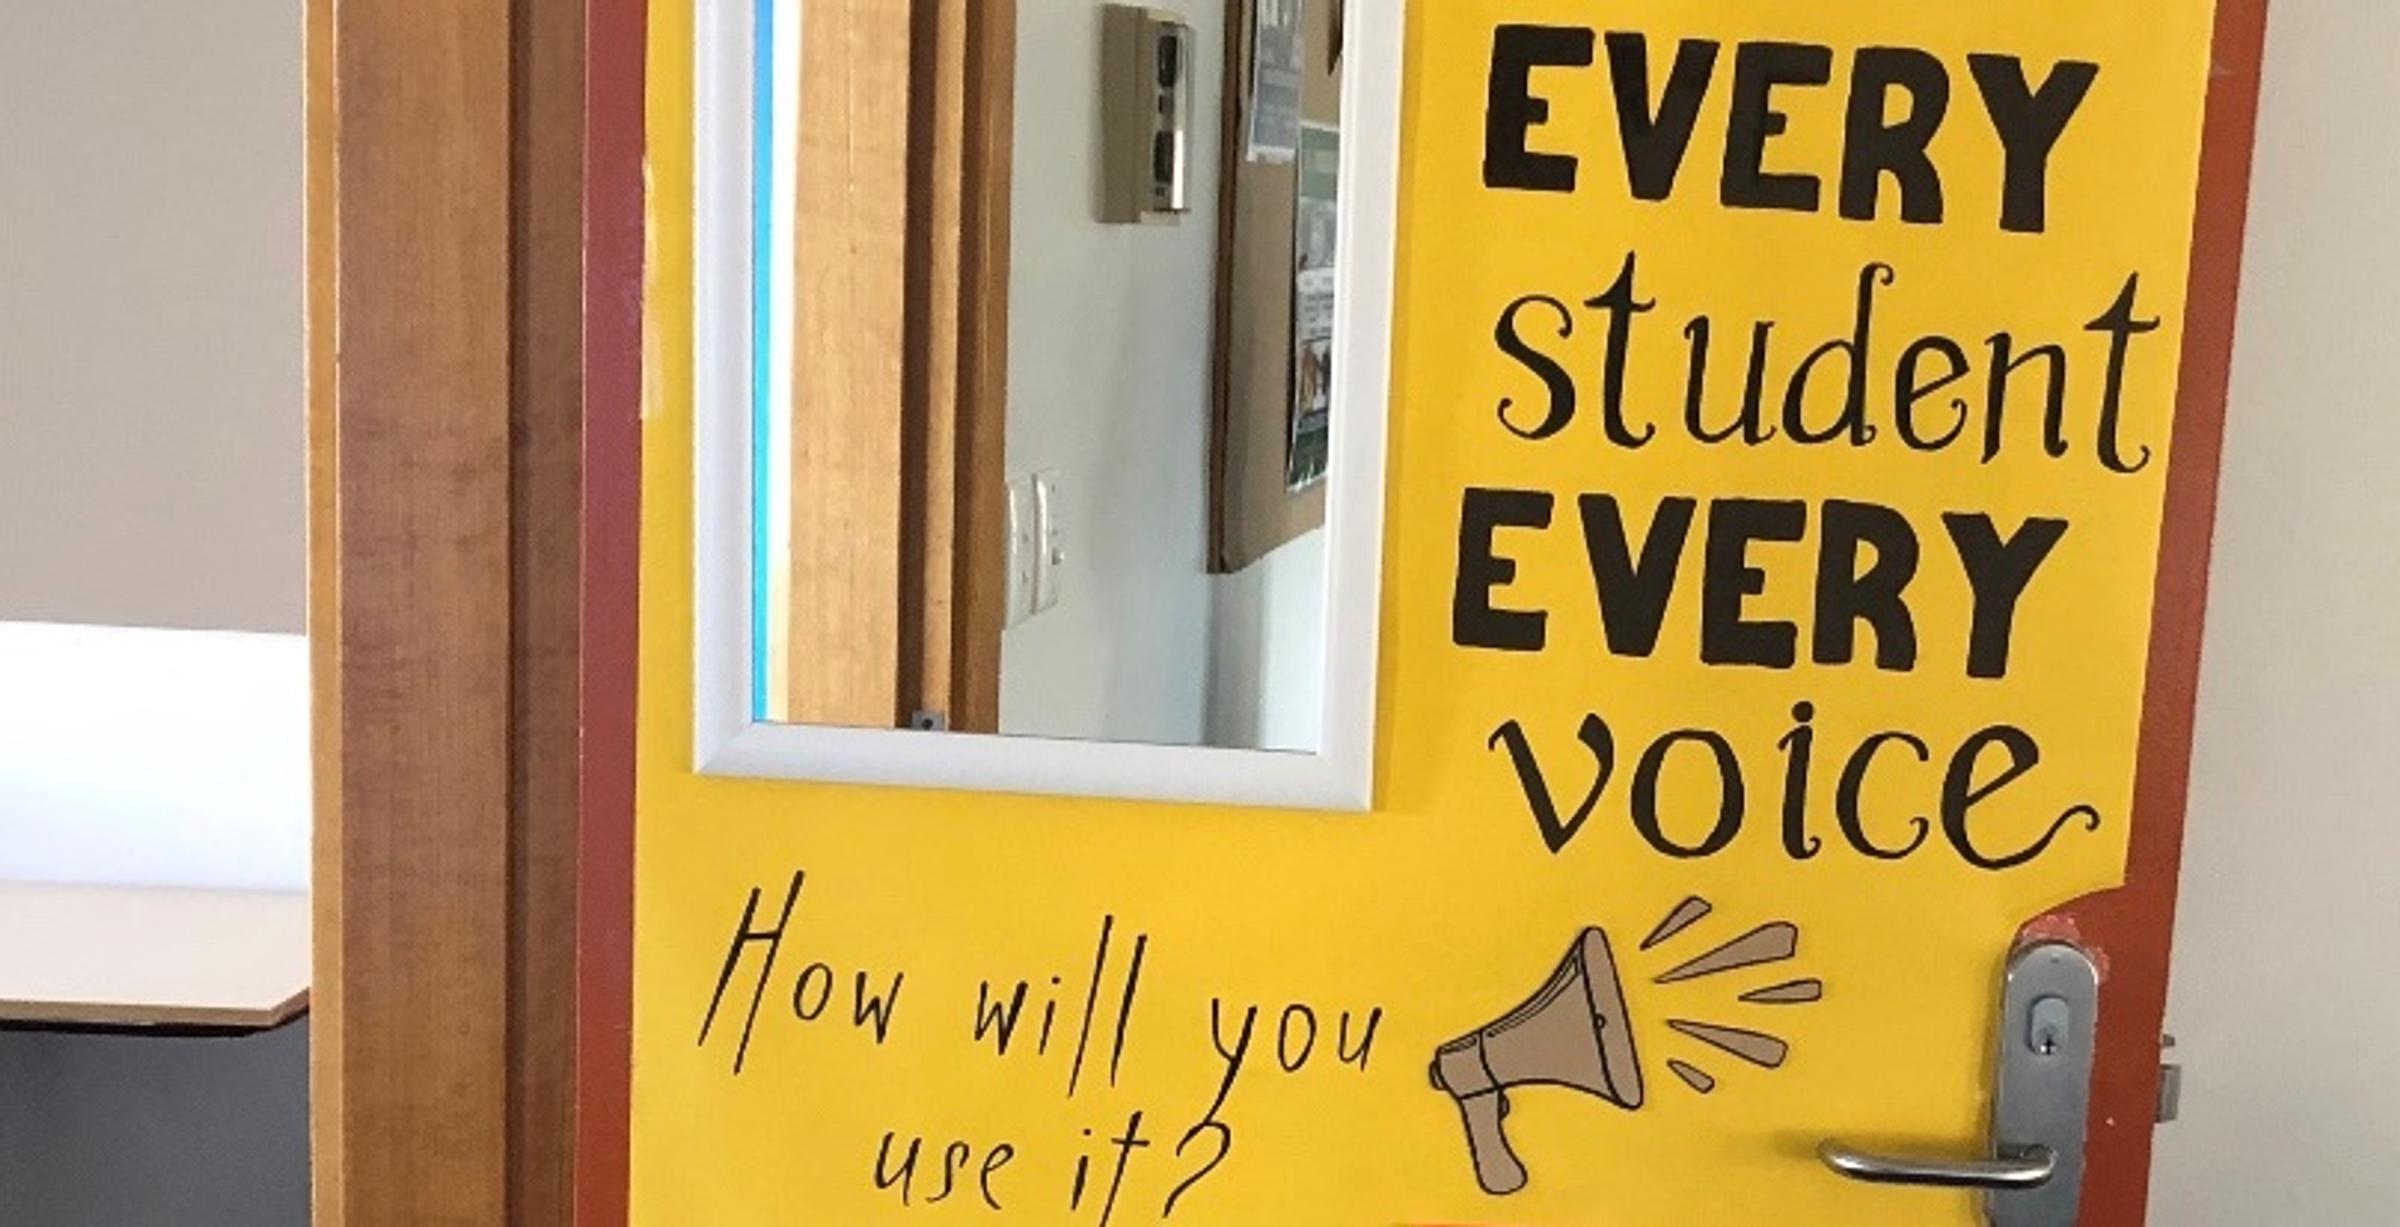 EVERY
student
EVERY
voice
How will you
use it?